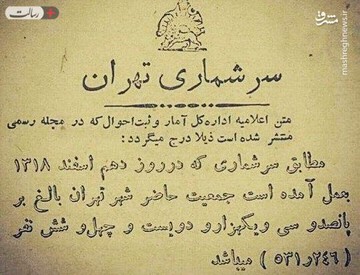 رسالت
مشرق
mashreghnews.ir
سرشماری تهران
متن اعلامیه اداره کل آمار و ثبت احوال که در مجله رسمی
منتشر شده است ذیلا درج میگردد:
مطابق سرشماری که در روز دهم اسفند ۱۳۱۸
بعمل آمده است جمعیت حاضر شهر تهران بالغ بر
پانصدو سی ویکهزارو دویست و چهل و شش نفر
(۲۴۶ر۵۳۱) میباشد